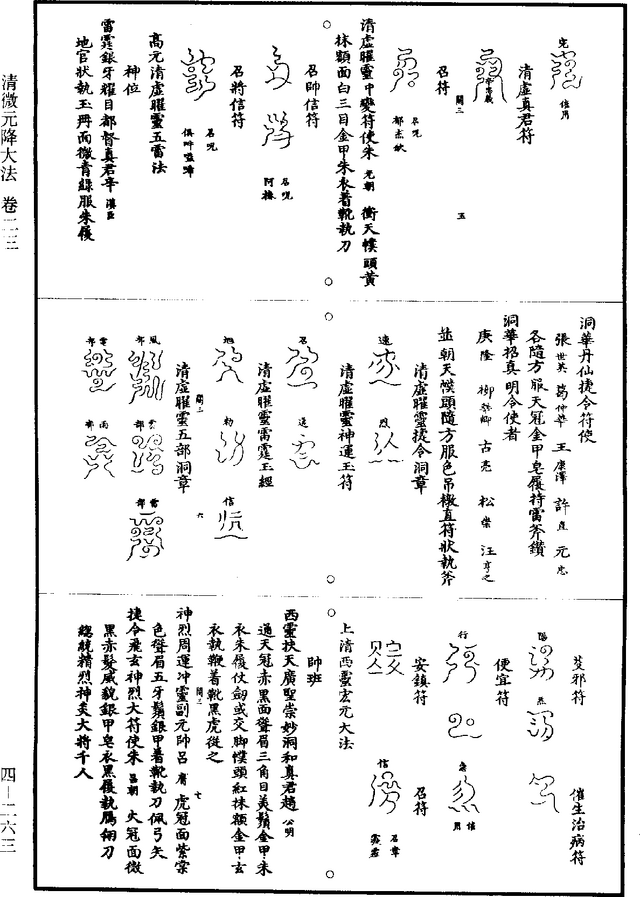 清虛真君符
召符
清虛曜靈中變符使朱元朝 衝天幞頭黃
抹額面白三目金甲朱衣着靴執刀
召帥信符
召將信符
高元清虛曜靈五雷法
神位
雷霆銀牙耀目都督真君辛漢臣
地官狀執玉冊面微青綠服朱履
洞華丹仙捷令符使
張世英 葛仲華 王康澤 許直 元忠
各隨方服天冠金甲皂履持雷斧鑽
洞華招真明令使者
庚隆 柳 古亮 松榮 汪亨之
並朝天幞頭隨方服色吊橔直符狀執斧
清虛曜靈捷令洞章
清虛曜靈神運玉符
清虛曜靈雷霆玉經
清虛曜靈五部洞章
芟邪符
催生治病符
便宜符
安鎮符
召符
上清西靈宏元大法
帥班
西靈扶天廣聖崇妙洞和真君趙公明
通天冠赤黑面聳眉三角目美鬚金甲朱
衣朱履仗劒或交脚幞頭紅抹額金甲玄
衣執鞭着靴黑虎從之
神烈周運沖靈副元帥呂 虎冠面紫棠
色聳眉五牙鬚銀甲着靴執刀佩弓矢
捷令飛玄神烈大符使朱 火冠面微
黑赤髮威貌銀甲皂衣黑履執鴈翎刀
總統精烈神炁大將千人
清微元降大法 卷二三
四—二六三